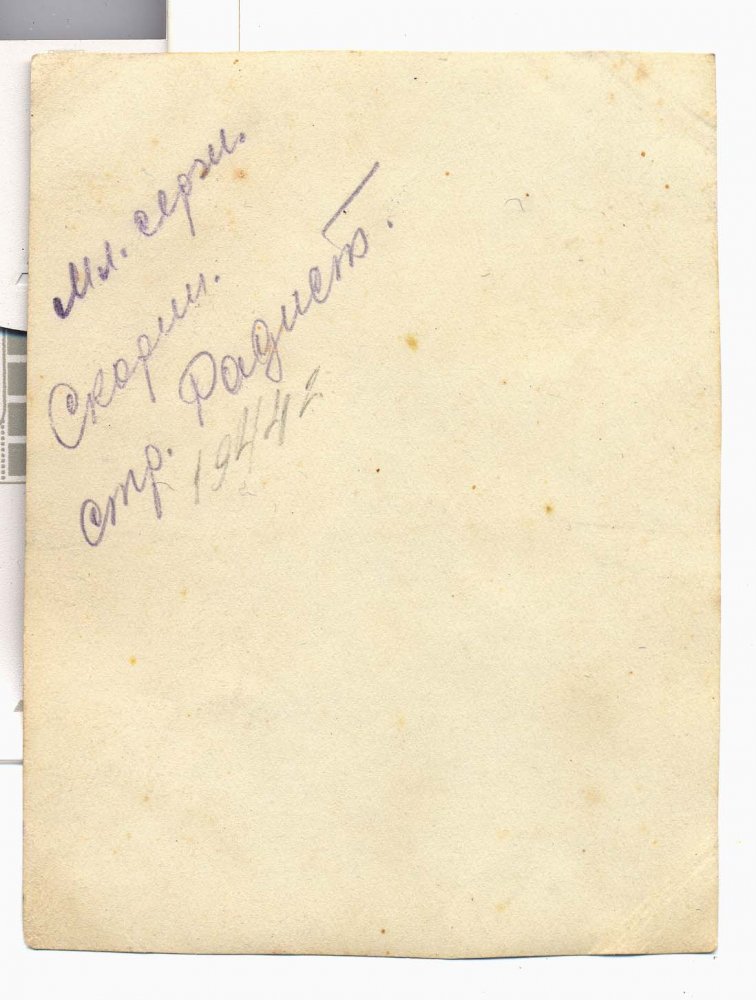 Мл. серж.
Скорин.
стр. Радист.
1944 г